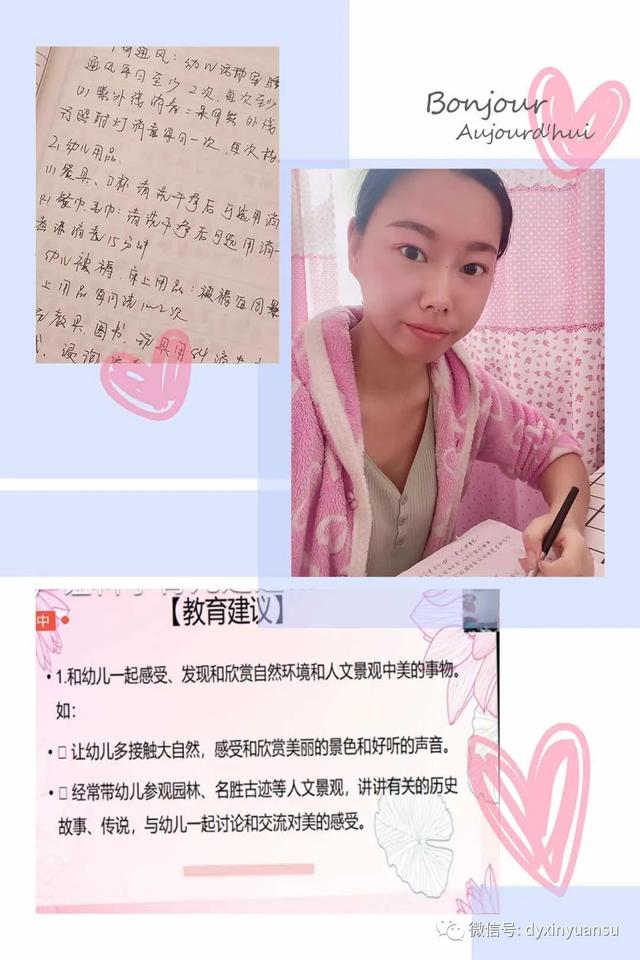 通风：幼儿活动室、睡
通风每日至少2次，每次至少
(2)紫外线消毒：采用紫外线
灯照射灯消毒每日一次，每次持
2、幼儿用品
(1)餐具、口杯：请洗干净后可选用消
(2)餐巾毛巾：请洗干净后可选用消
毒液消毒15分钟
幼儿被褥、床上用品：被褥每周晒
上用品每月洗1~2次
教具、图书、玩具用84消毒
浸泡
Bonjour
Aujourd'hui
中
【教育建议】
• 1.和幼儿一起感受、发现和欣赏自然环境和人文景观中美的事物。
如：
• □ 让幼儿多接触大自然，感受和欣赏美丽的景色和好听的声音。
• □ 经常带幼儿参观园林、名胜古迹等人文景观，讲讲有关的历史
故事、传说，与幼儿一起讨论和交流对美的感受。
微信号: dyxinyuansu